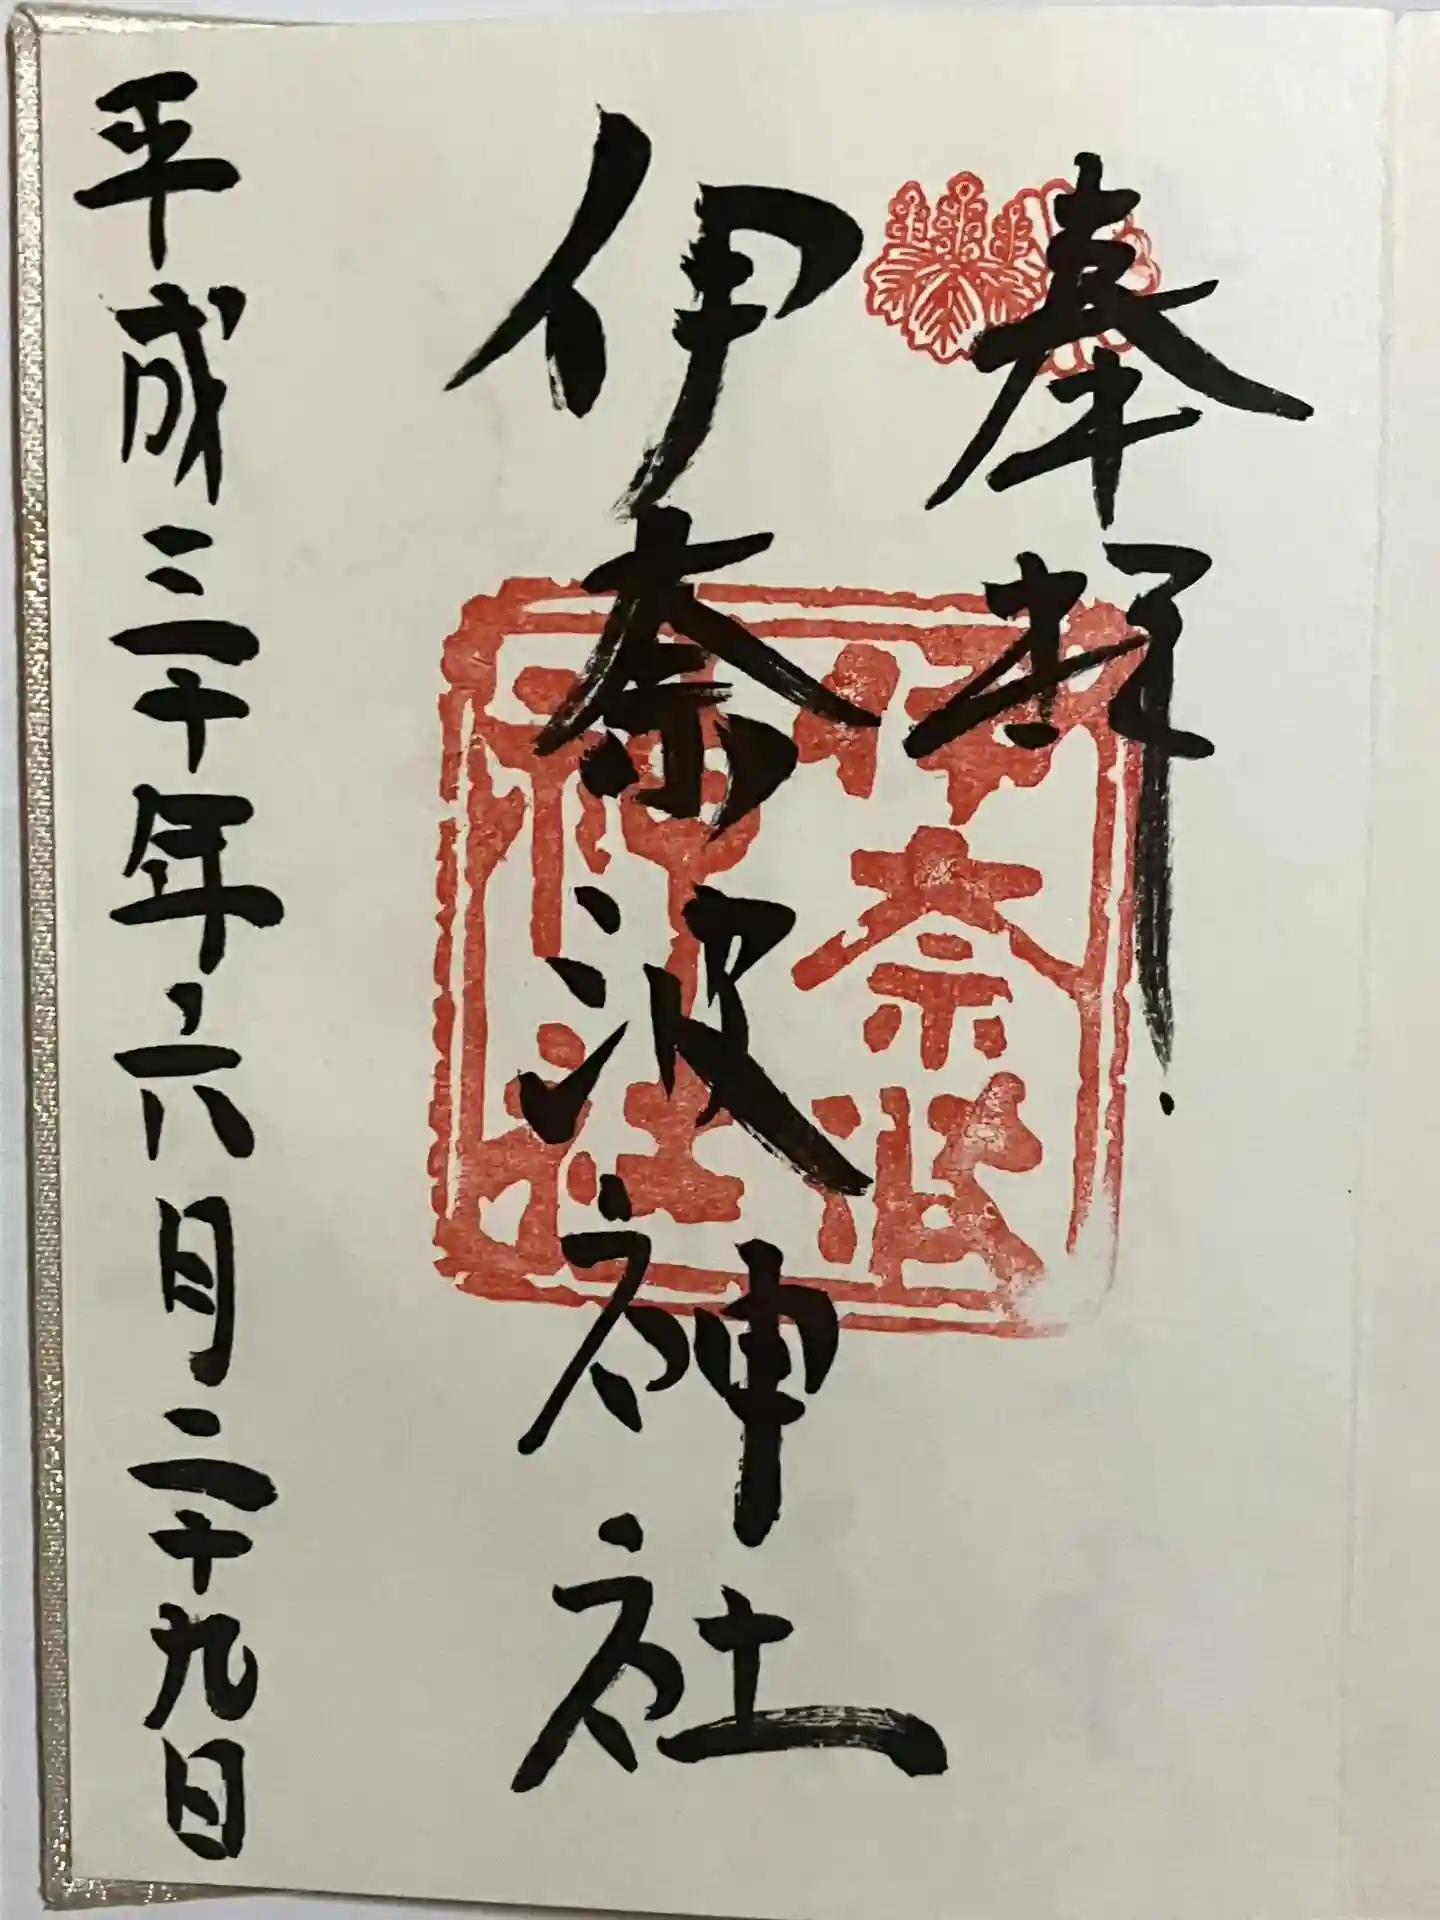 奉拝
伊奈波神社
伊奈波
神社
平成三十年六月二十九日